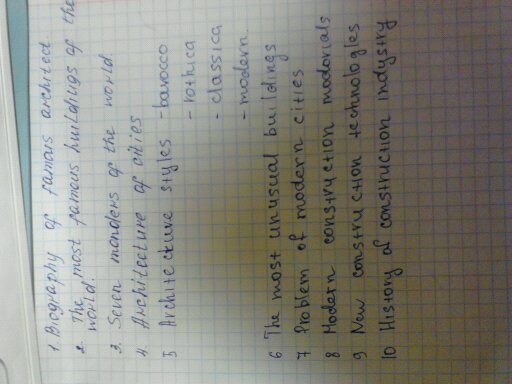 1. Biography of famous architect
2. The most famous buildings of the
world.
3. Seven wonders of the world
4. Architecture of cities
5 Architecture styles - barocco
- rothica
- classica
- modern
6 The most unusual buildings
7 Problem of modern cities
8 Modern construction modorials
9 New construction technologies
10 History of construction indystry